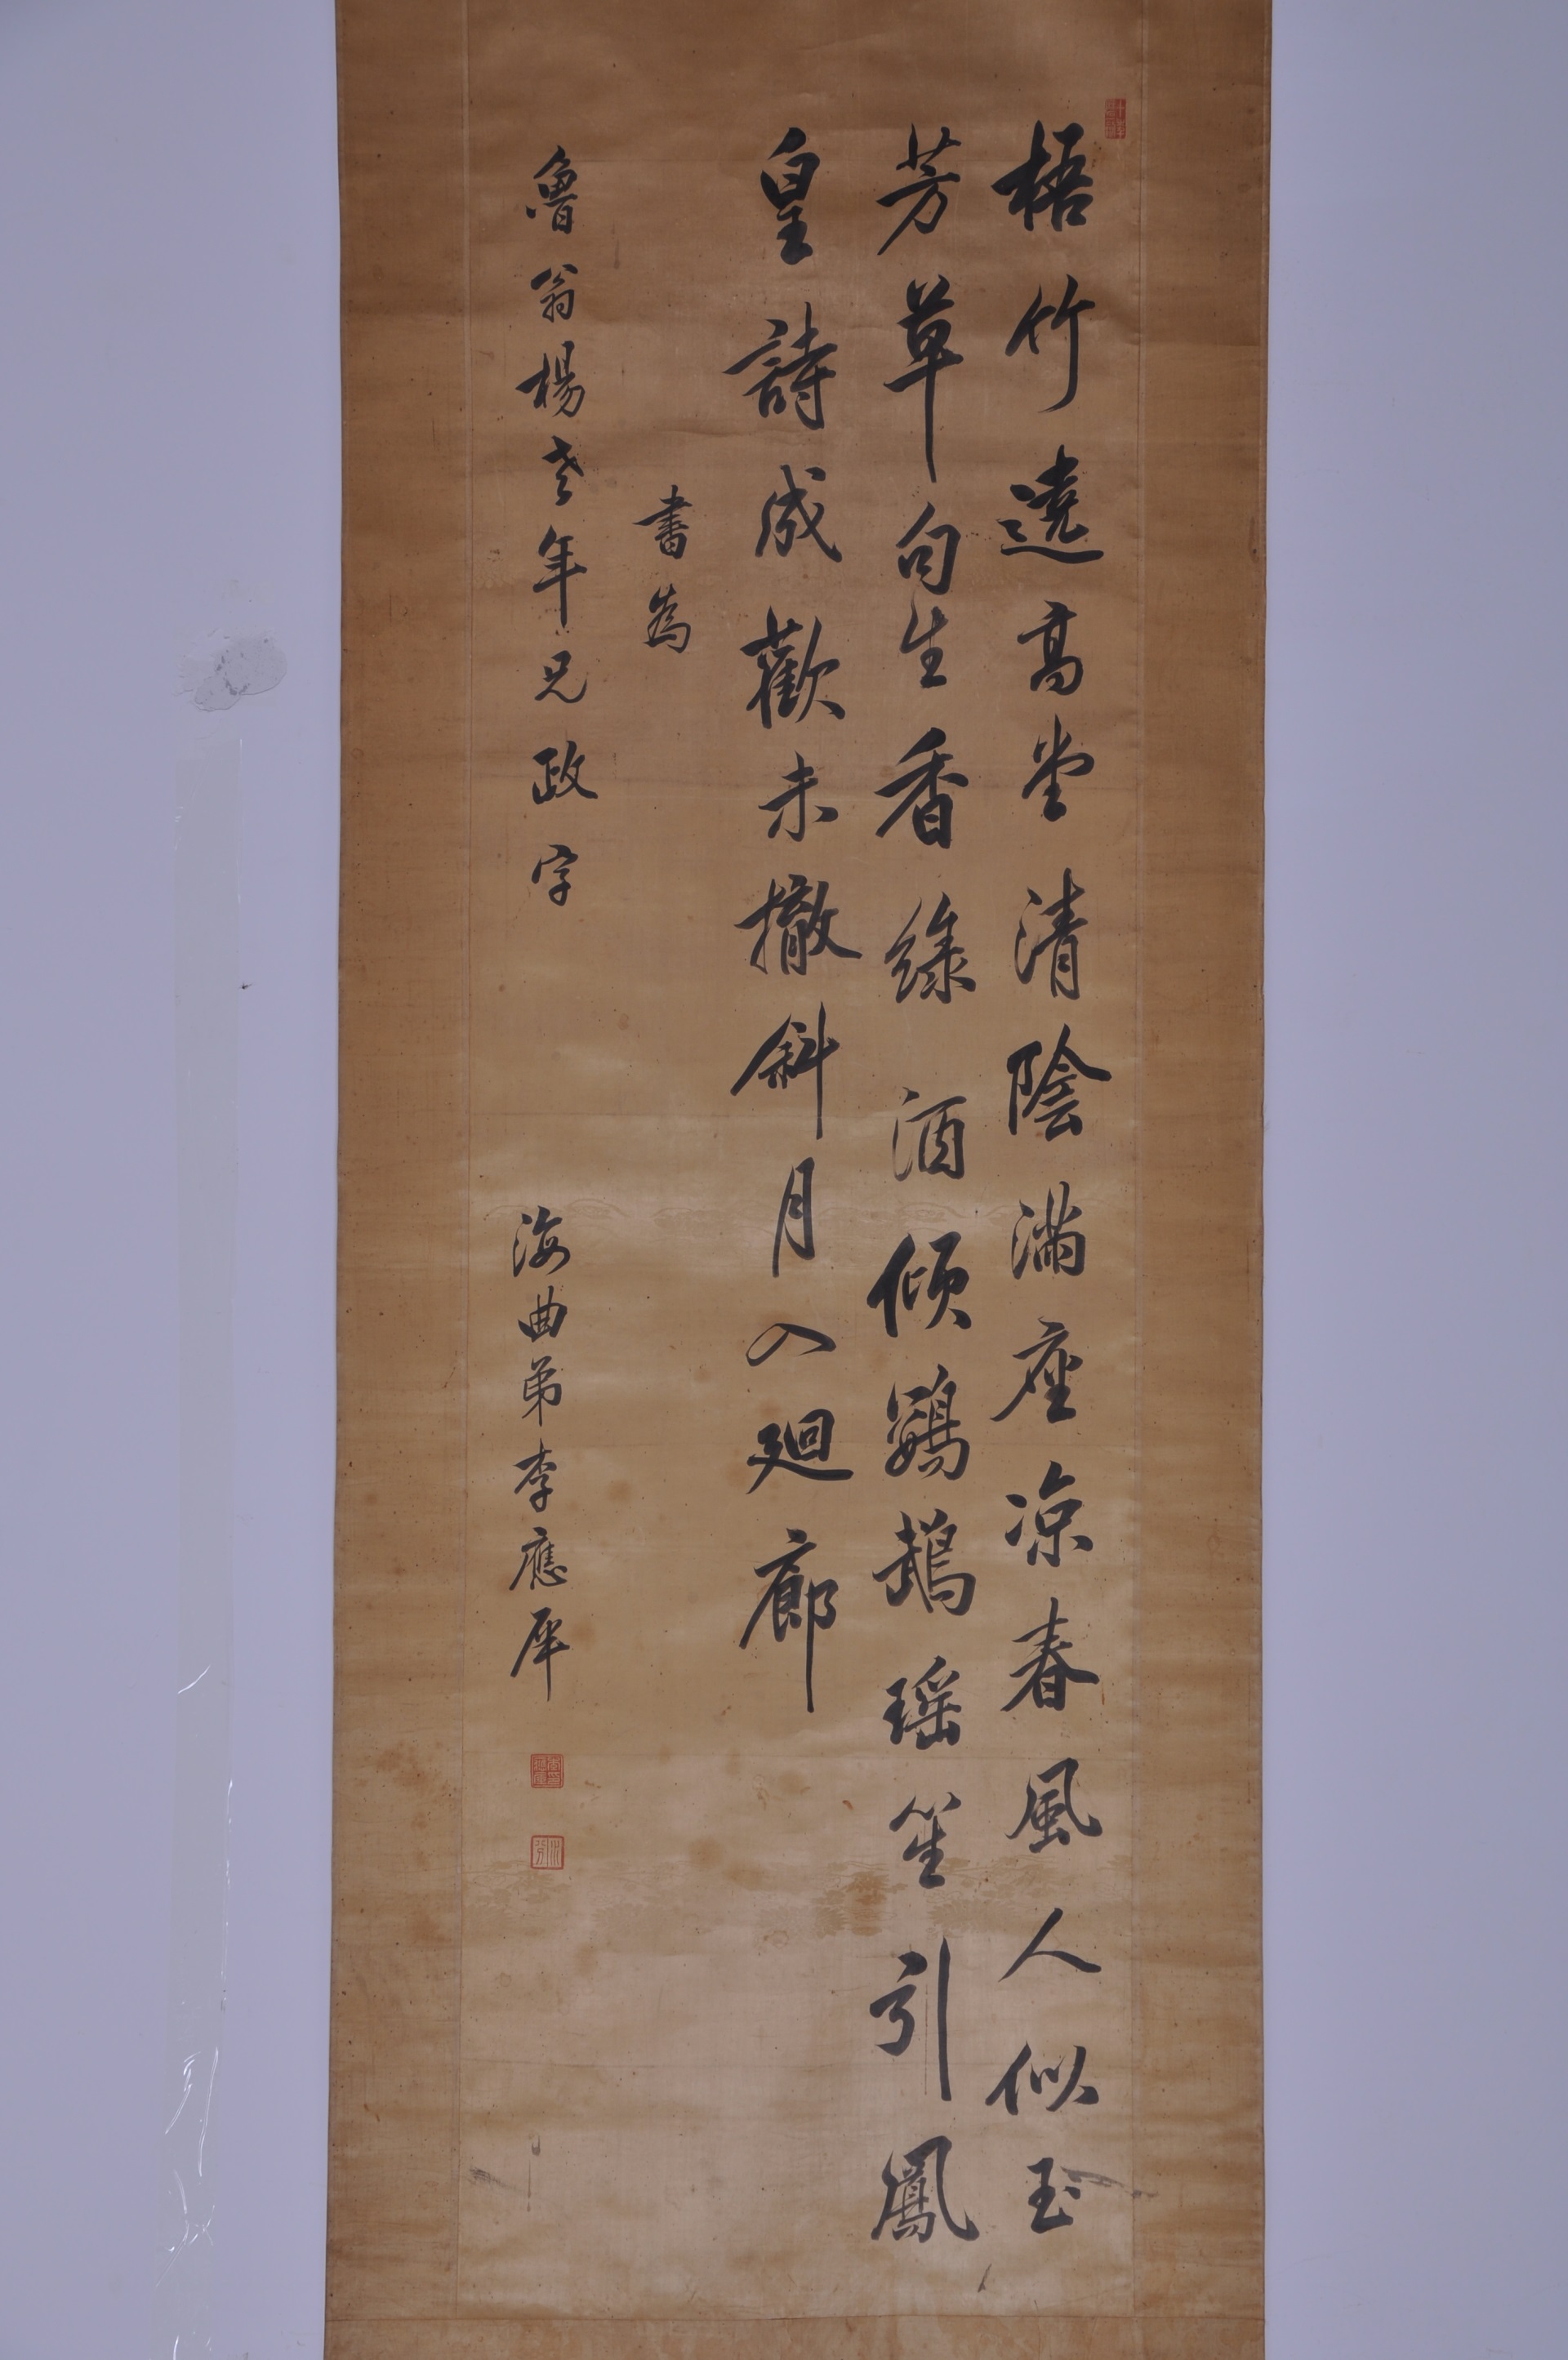 梧竹遶高堂清陰滿座凉春風人似玉
芳草句生香綠酒傾鸚鵡瑶笙引鳳
皇詩成歡未撤斜月入廻廊
書為
魯翁楊老年兄政字
海曲弟李應犀